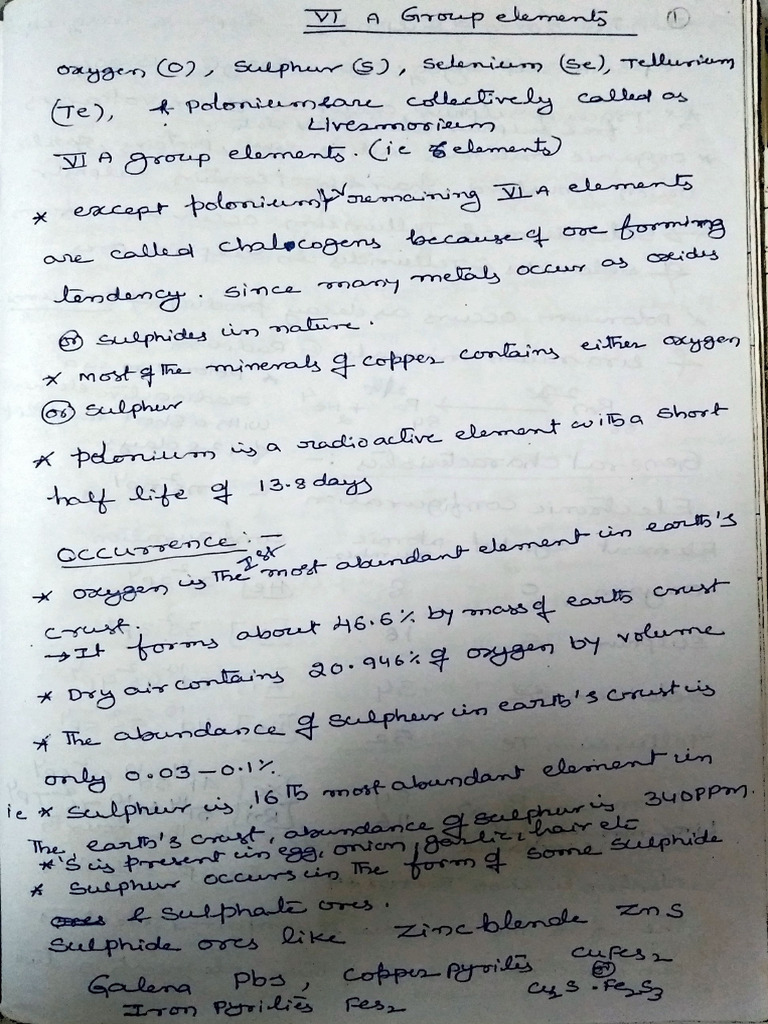 VI A Group elements ①
oxygen (O), Sulphur (S), Selenium (Se), Tellurium
(Te), & Polonium are collectively called as
Livermorium
VI A group elements. (ie 6 elements)
* except polonium, Lv remaining VI A elements
are called chalcogens because of ore forming
tendency. since many metals occur as oxides
(or) sulphides in nature.
* most of the minerals of copper contains either oxygen
(or) Sulphur
* polonium is a radioactive element with a short
half life of 13.8 days
Occurrence :-
* oxygen is the Ist most abundant element in earth's
crust.
→ It forms about 46.6% by mass of earth crust
* Dry air contains 20.946% of oxygen by volume
* The abundance of sulphur in earth's crust is
only 0.03-0.1%
ie * Sulphur is 16th most abundant element in
The earth's crust, abundance of sulphur is 340PPm.
* 'S is present in egg, onion, garlic, hair etc
* Sulphur occurs in the form of some sulphide
& sulphate ores.
Sulphide ores like Zinc blende ZnS
Galena Pbs, copper pyrities cuFeS2
(or)
Iron Pyrities FeS2 Cu2S.Fe2S3